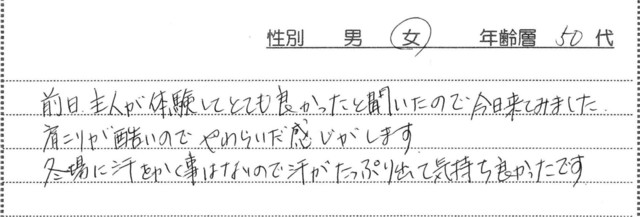 性別 男 女 年齢層 50 代
前日主人が体験してとても良かったと聞いたので今日来てみました.
肩こりが酷いのでやわらいだ感じがします.
冬場に汗をかく事はないので汗がたっぷり出て気持ち良かったです